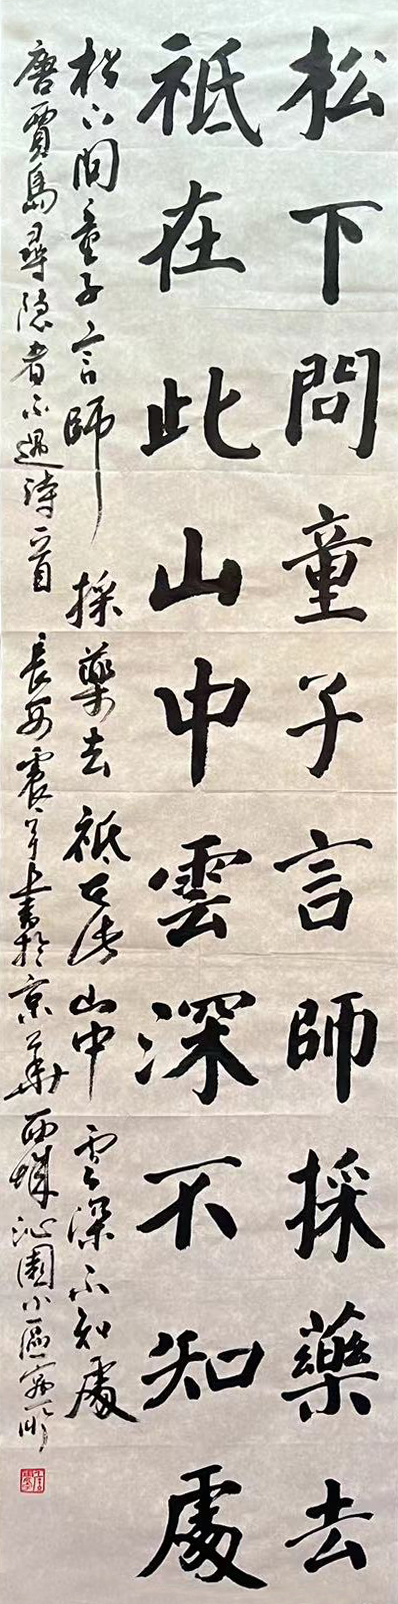 松下問童子言師採藥去
祗在此山中雲深不知處
松下問童子言師採藥去祗在此山中雲深不知處
唐賈島尋隱者不遇詩一首長安震年書於京華西城沁園小區寓所